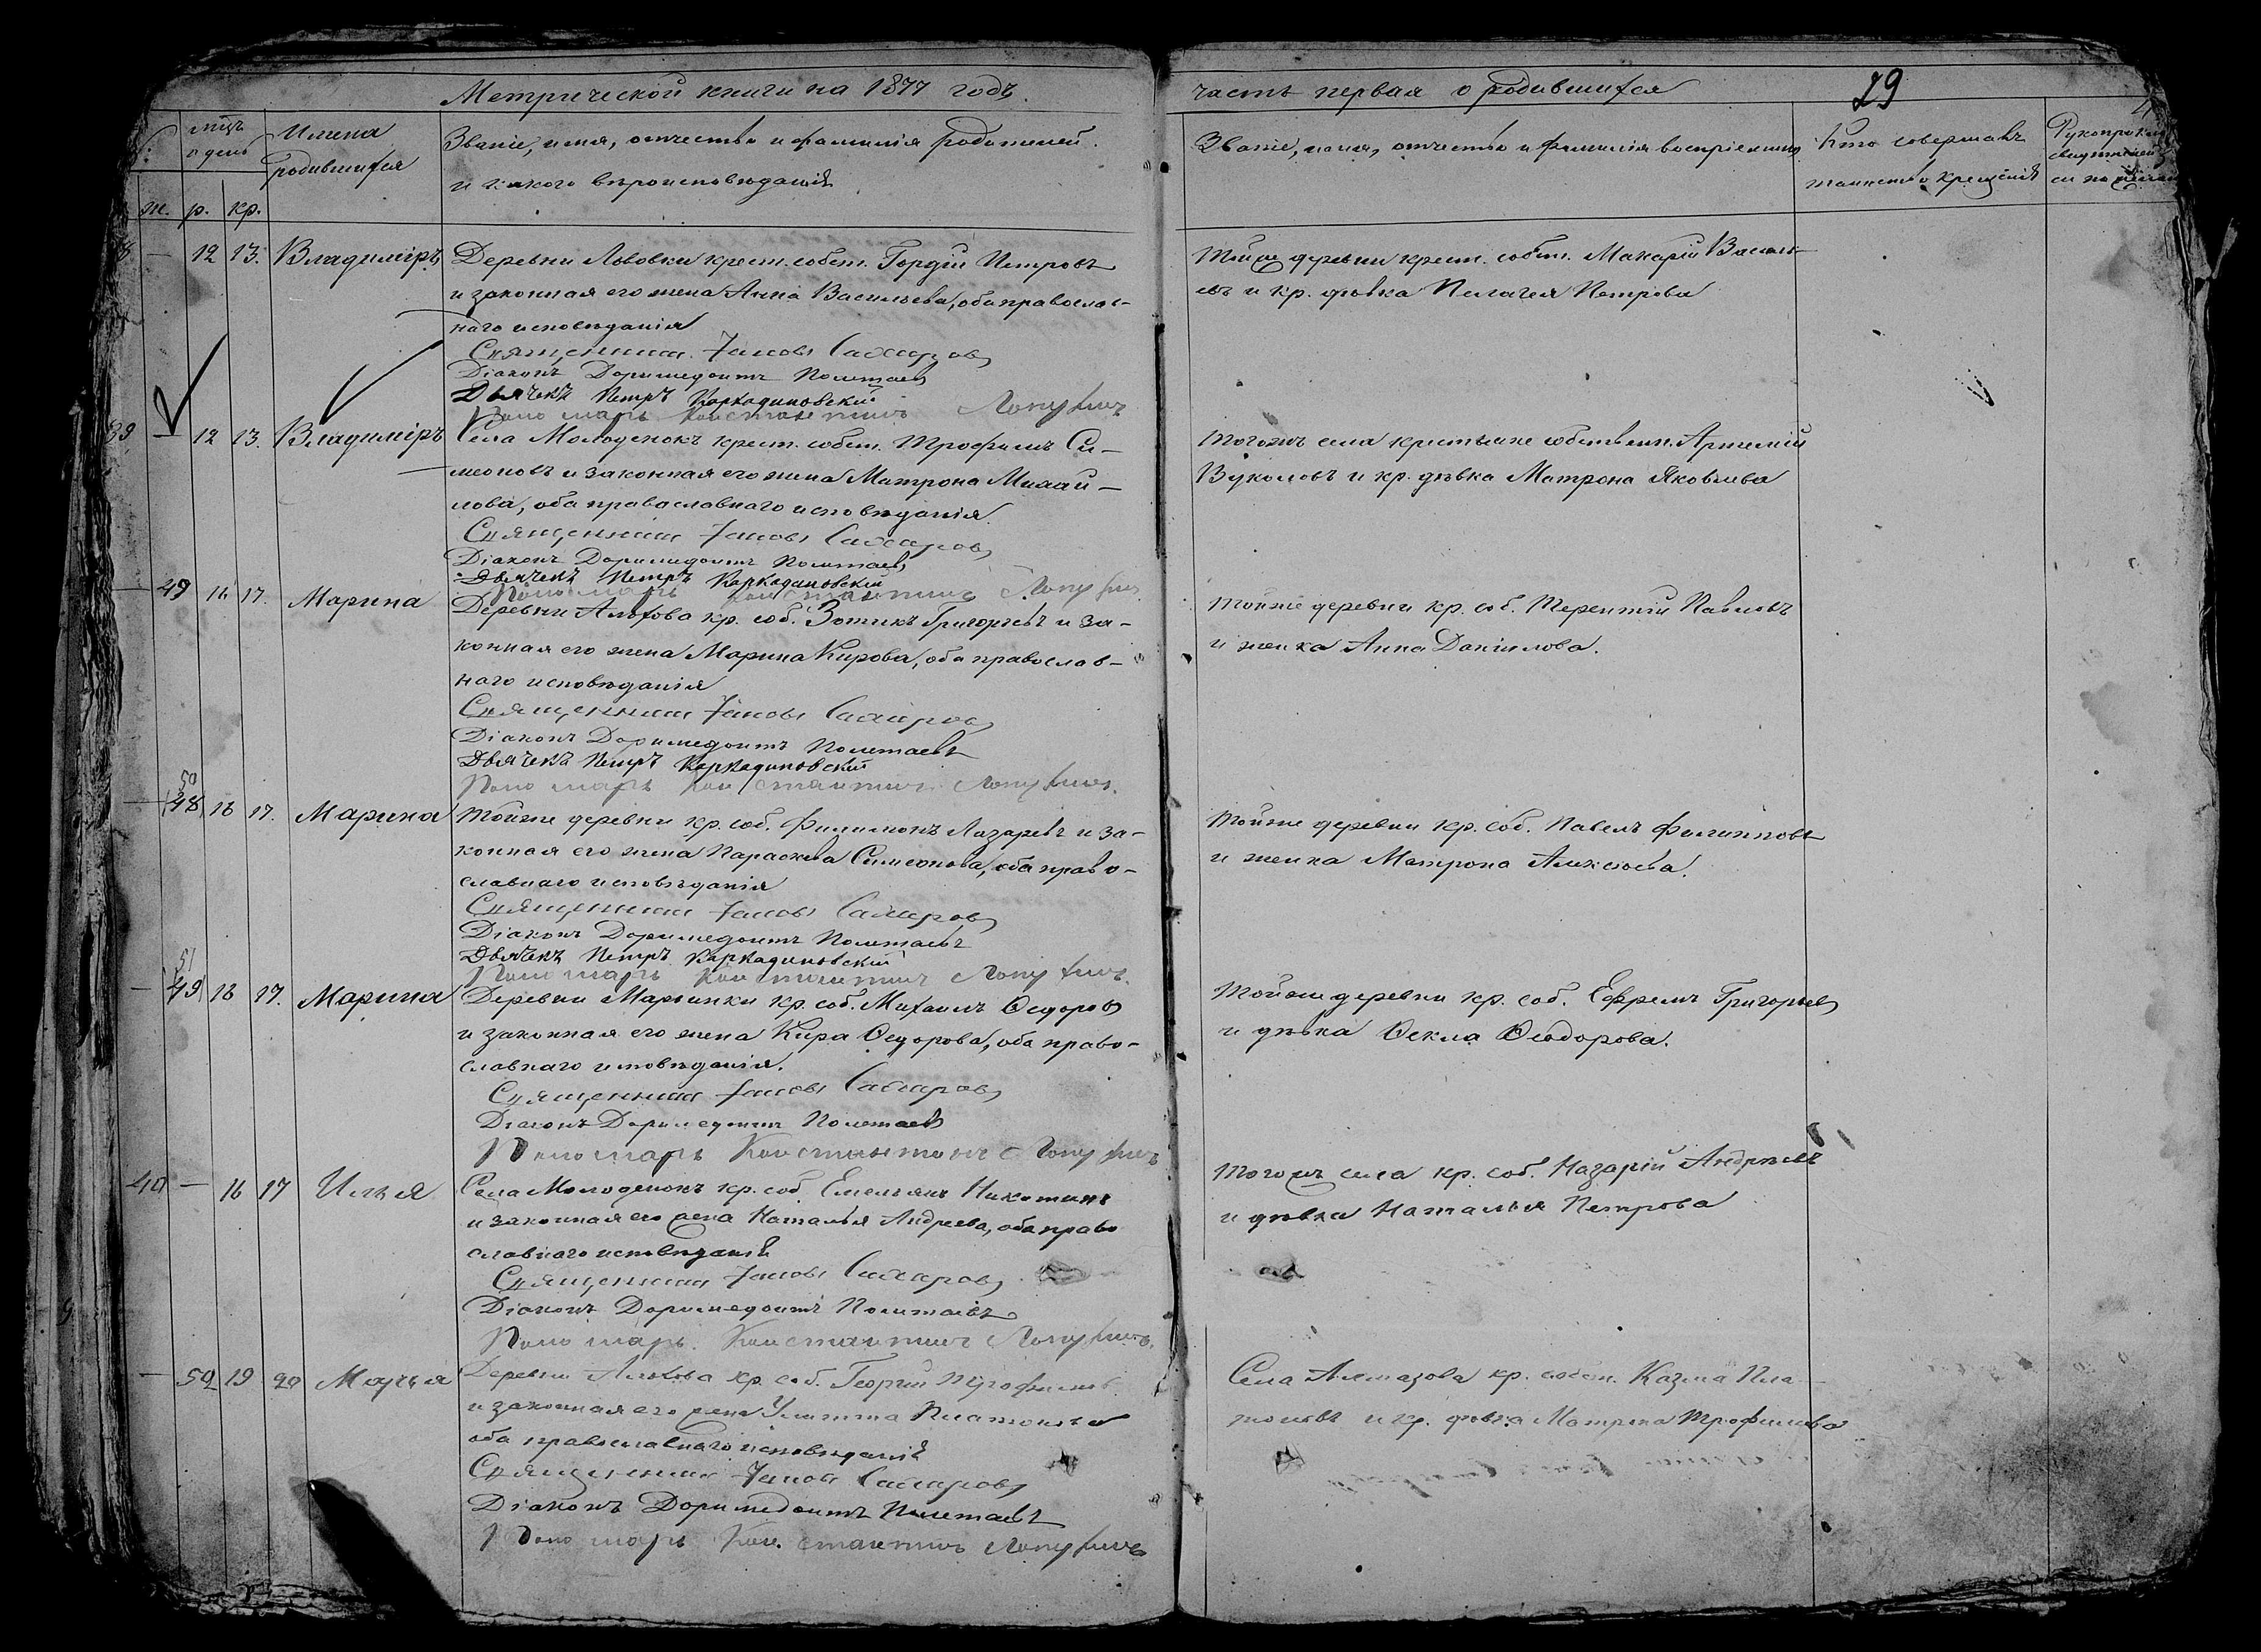 Метрической книги на 1877 годъ
часть первая о родившихся
29
мцъ
и день
Имена
родившихся
Званіе, имя, отчество и фамилія родителей
и какого вѣроисповѣданія
Званіе, имя, отчество и фамилія воспріемник
Кто совершалъ
таинство крещенія
ж. р. кр.
8 — 12 13. Владиміръ
Деревни Львовки крест. собст. Гордій Петровъ
и законная его жена Анна Васильева, оба православ-
наго исповѣданія
Священникъ Іаковъ Сахаровъ
Діаконъ Доримедонтъ Полетаевъ
Дьячекъ Петръ Каркадиновскій
Пономарь Константинъ Лопухинъ
Тойже деревни крест. собст. Макарій Василь-
евъ и кр. дѣвка Пелагея Петрова
39 — 12 13. Владиміръ
Села Молоденокъ крест. собст. Трофимъ Си-
меоновъ и законная его жена Матрона Михай-
лова, оба православнаго исповѣданія.
Священникъ Іаковъ Сахаровъ
Діаконъ Доримедонтъ Полетаевъ
Дьячекъ Петръ Каркадиновскій
Пономарь Константинъ Лопухинъ
Тогожъ села крестьяне собственн. Артемій
Вуколовъ и кр. дѣвка Матрона Яковлева
— 49 16 17. Марина
Деревни Аляхова кр. соб. Зотикъ Григорьевъ и за-
конная его жена Марина Кирова, оба православ-
наго исповѣданія
Священникъ Іаковъ Сахаровъ
Діаконъ Доримедонтъ Полетаевъ
Дьячекъ Петръ Каркадиновскій
Пономарь Константинъ Лопухинъ.
Тойже деревни кр. соб. Терентій Павловъ
и женка Анна Данилова.
50
— (48) 16 17. Марина
Тойже деревни кр. соб. Филимонъ Лазаревъ и за-
конная его жена Параскева Симеонова, оба право-
славнаго исповѣданія
Священникъ Іаковъ Сахаровъ
Діаконъ Доримедонтъ Полетаевъ
Дьячекъ Петръ Каркадиновскій
Пономарь Константинъ Лопухинъ.
Тойже деревни кр. соб. Павелъ Филипповъ
и женка Матрона Алексѣева.
51
— (49) 16 17. Марина
Деревни Марьинки кр. соб. Михаилъ Ѳедоровъ
и законная его жена Кира Ѳедорова, оба право-
славнаго исповѣданія.
Священникъ Іаковъ Сахаровъ
Діаконъ Доримедонтъ Полетаевъ
Пономарь Константинъ Лопухинъ
Тойже деревни кр. соб. Ефремъ Григорьевъ
и дѣвка Ѳекла Ѳеодорова.
40 — 16 17 Илья
Села Молоденокъ кр. соб. Емельянъ Никитинъ
и законная его жена Наталья Андреева, оба право
славнаго исповѣданія
Священникъ Іаковъ Сахаровъ
Діаконъ Доримедонтъ Полетаевъ
Пономарь Константинъ Лопухинъ.
Тогожъ села кр. соб. Назарій Андреевъ
и дѣвка Наталья Петрова
— 52 19 20 Марья
Деревни Аляхова кр. соб. Георгій Трофимовъ
и законная его жена Улитта Платонова
оба православнаго исповѣданія
Священникъ Іаковъ Сахаровъ
Діаконъ Доримедонтъ Полетаевъ
Пономарь Константинъ Лопухинъ
Села Алмазова кр. собст. Казма Пла-
тоновъ и кр. дѣвка Матрона Трофимова